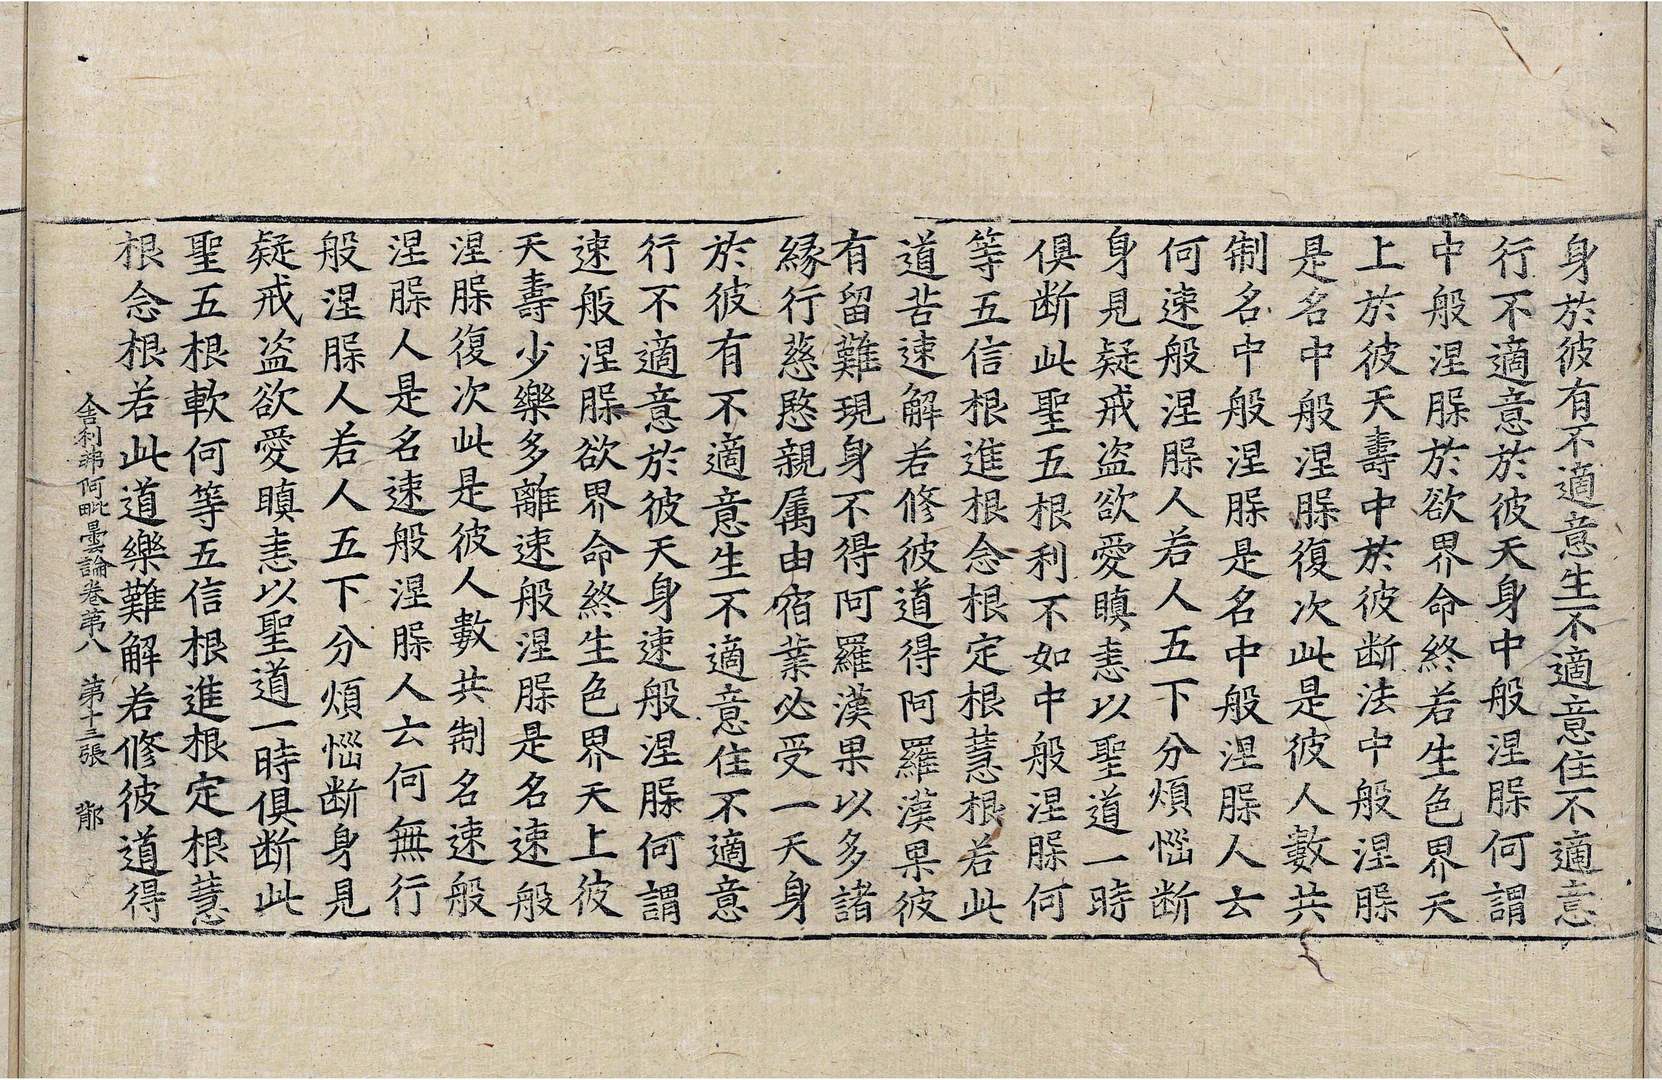 身於彼有不適意生不適意住不適意
行不適意於彼天身中般涅槃何謂
中般涅槃於欲界命終若生色界天
上於彼天壽中於彼断法中般涅槃
是名中般涅槃復次此是彼人數共
制名中般涅槃是名中般涅槃人云
何速般涅槃人若人五下分煩惱断
身見疑戒盗欲愛瞋恚以聖道一時
俱断此聖五根利不如中般涅槃何
等五信根進根念根定根慧根若此
道苦速解若修彼道得阿羅漢果彼
有留難現身不得阿羅漢果以多諸
縁行慈愍親属由宿業必受一天身
於彼有不適意生不適意住不適意
行不適意於彼天身速般涅槃何謂
速般涅槃欲界命終生色界天上彼
天壽少樂多離速般涅槃是名速般
涅槃復次此是彼人數共制名速般
涅槃人是名速般涅槃人云何無行
般涅槃人若人五下分煩惱断身見
疑戒盗欲愛瞋恚以聖道一時俱断此
聖五根軟何等五信根進根定根慧
根念根若此道樂難解若修彼道得
舍利弗阿毗曇論卷第八 第十三張